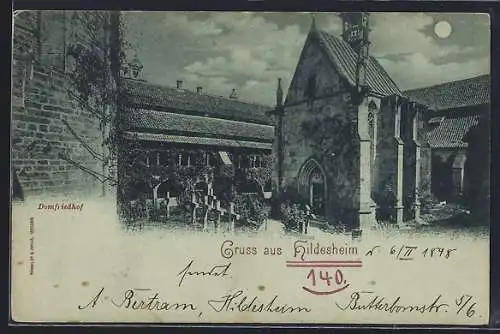 Domfriedhof
Gruss aus Hildesheim
d. 6/II 1898
140.
A Bertram, Hildesheim Butterbornstr. 5/6